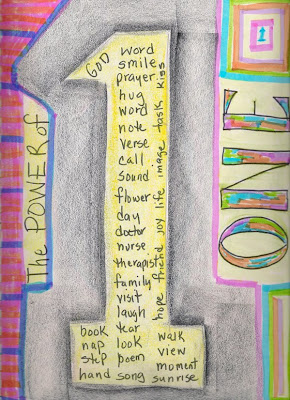 The POWER of
GOD
word
smile
prayer
hug
word
note
verse
call
sound
flower
day
doctor
nurse
therapist
family
visit
laugh
book tear walk
nap look view
step poem moment
hand song sunrise
hope friend joy life image task kiss
ONE
1